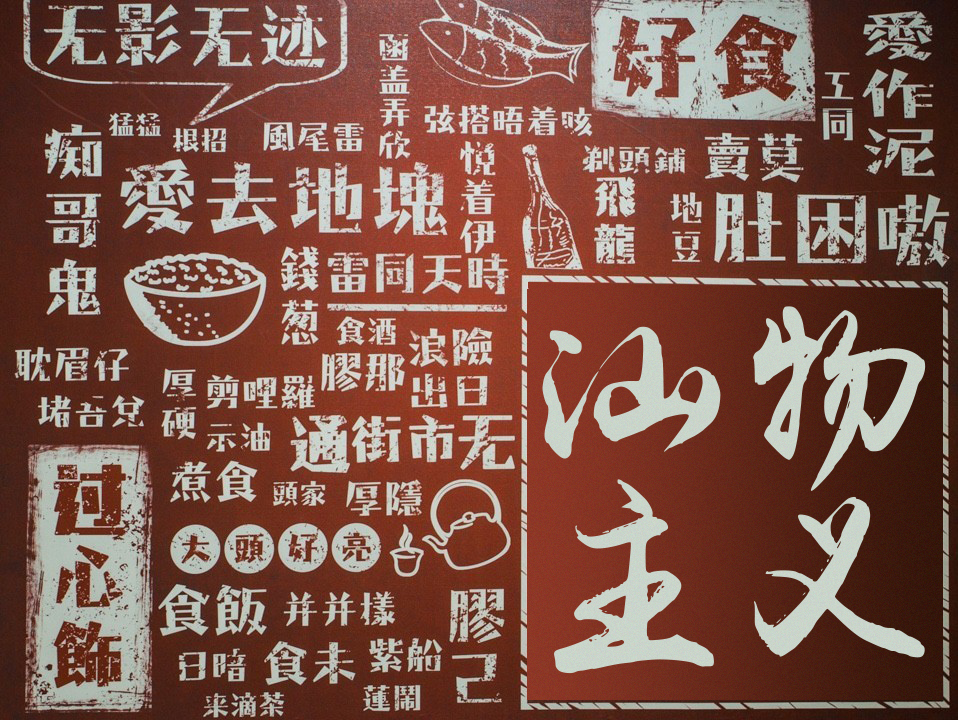 无影无迹
好食
愛作泥
工同
猛猛
根招
風尾雷
弦搭晤着咳
痴哥鬼
愛去地塊
悦着伊
剃頭鋪
飛龍
賣莫
地豆
肚困嗷
錢葱
雷同天時
食酒
膠那
浪險
出日
耽眉仔
厚硬
剪哩羅
示油
通街市无
煮食
頭家
厚隱
过心飾
大頭好亮
食飯
并并樣
膠己
日暗
食未
紫船
来滴茶
蓮鬧
汕物
主义